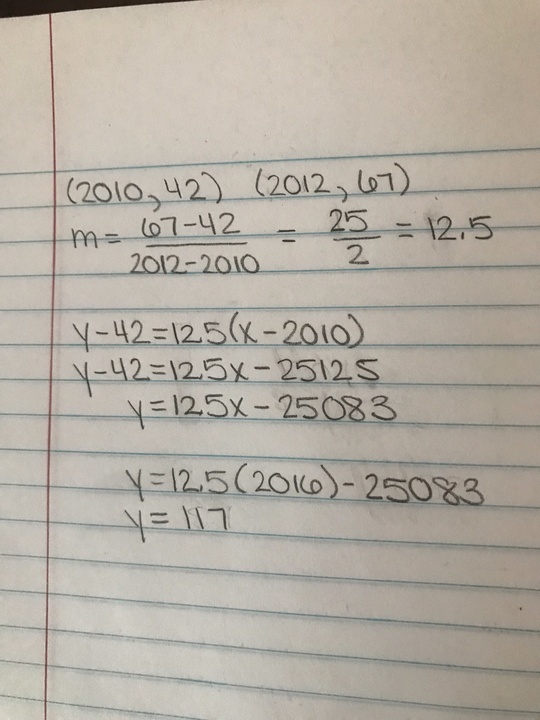 (2010, 42) (2012, 67)
m = 67-42 / 2012-2010 = 25/2 = 12.5
y-42=12.5(x-2010)
y-42=12.5x-25125
y=12.5x-25083
y=12.5(2016)-25083
y=117